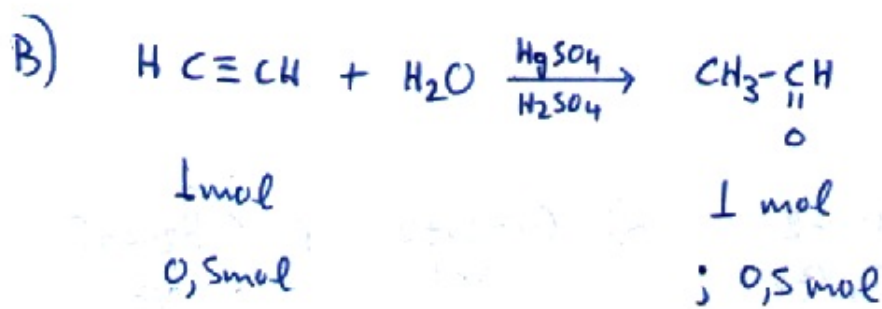 B) HC≡CH + H2O HgSO4 H2SO4 → CH3-CH
=
O
1mol 1 mol
0,5mol ; 0,5 mol